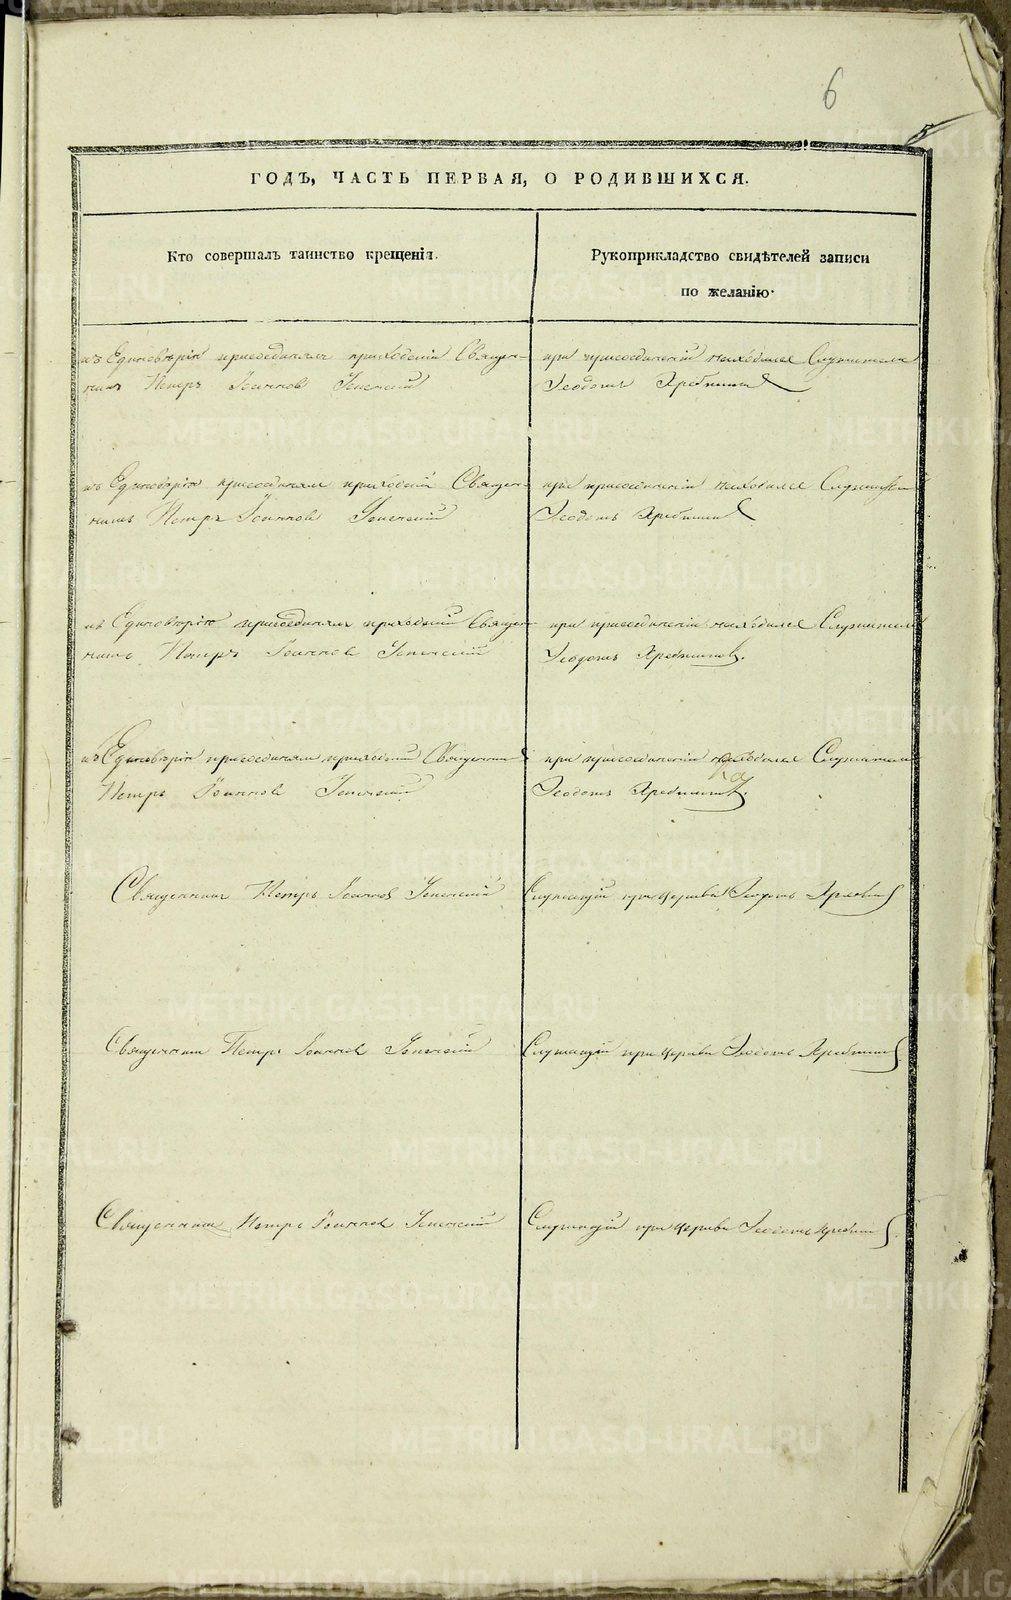 6
5
ГОДЪ, ЧАСТЬ ПЕРВАЯ, О РОДИВШИХСЯ.
Кто совершалъ таинство крещенія.
Рукоприкладство свидѣтелей записи
по желанію.
къ Единовѣрію присоединялъ приходскій Священ-
никъ Петръ Іоанновъ
при присоединеніи находился Служитель
Ѳеодотъ
къ Единовѣрію присоединялъ приходскій Священ-
никъ Петръ Іоанновъ
при присоединеніи находился Служитель
Ѳеодотъ
къ Единовѣрію присоединялъ приходскій Священ-
никъ Петръ Іоанновъ
при присоединеніи находился Служитель
Ѳеодотъ
къ Единовѣрію присоединялъ приходскій Священникъ
Петръ Іоанновъ
при присоединеніи находился Служитель
Ѳеодотъ
Священникъ Петръ Іоанновъ
Служащій при церкви Ѳеодотъ
Священникъ Петръ Іоанновъ
Служащій при церкви Ѳеодотъ
Священникъ Петръ Іоанновъ
Служащій при церкви Ѳеодотъ
METRIKI.GASO-URAL.RU